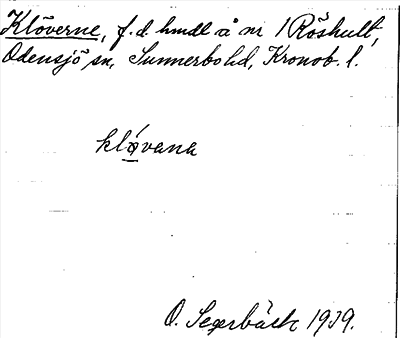 Klöverne, f.d. hmdl å nr 1 Röshult,
Odensjö sn, Sunnerbo hd, Kronob. l.
klǿvana
O. Segerbäck 1939.